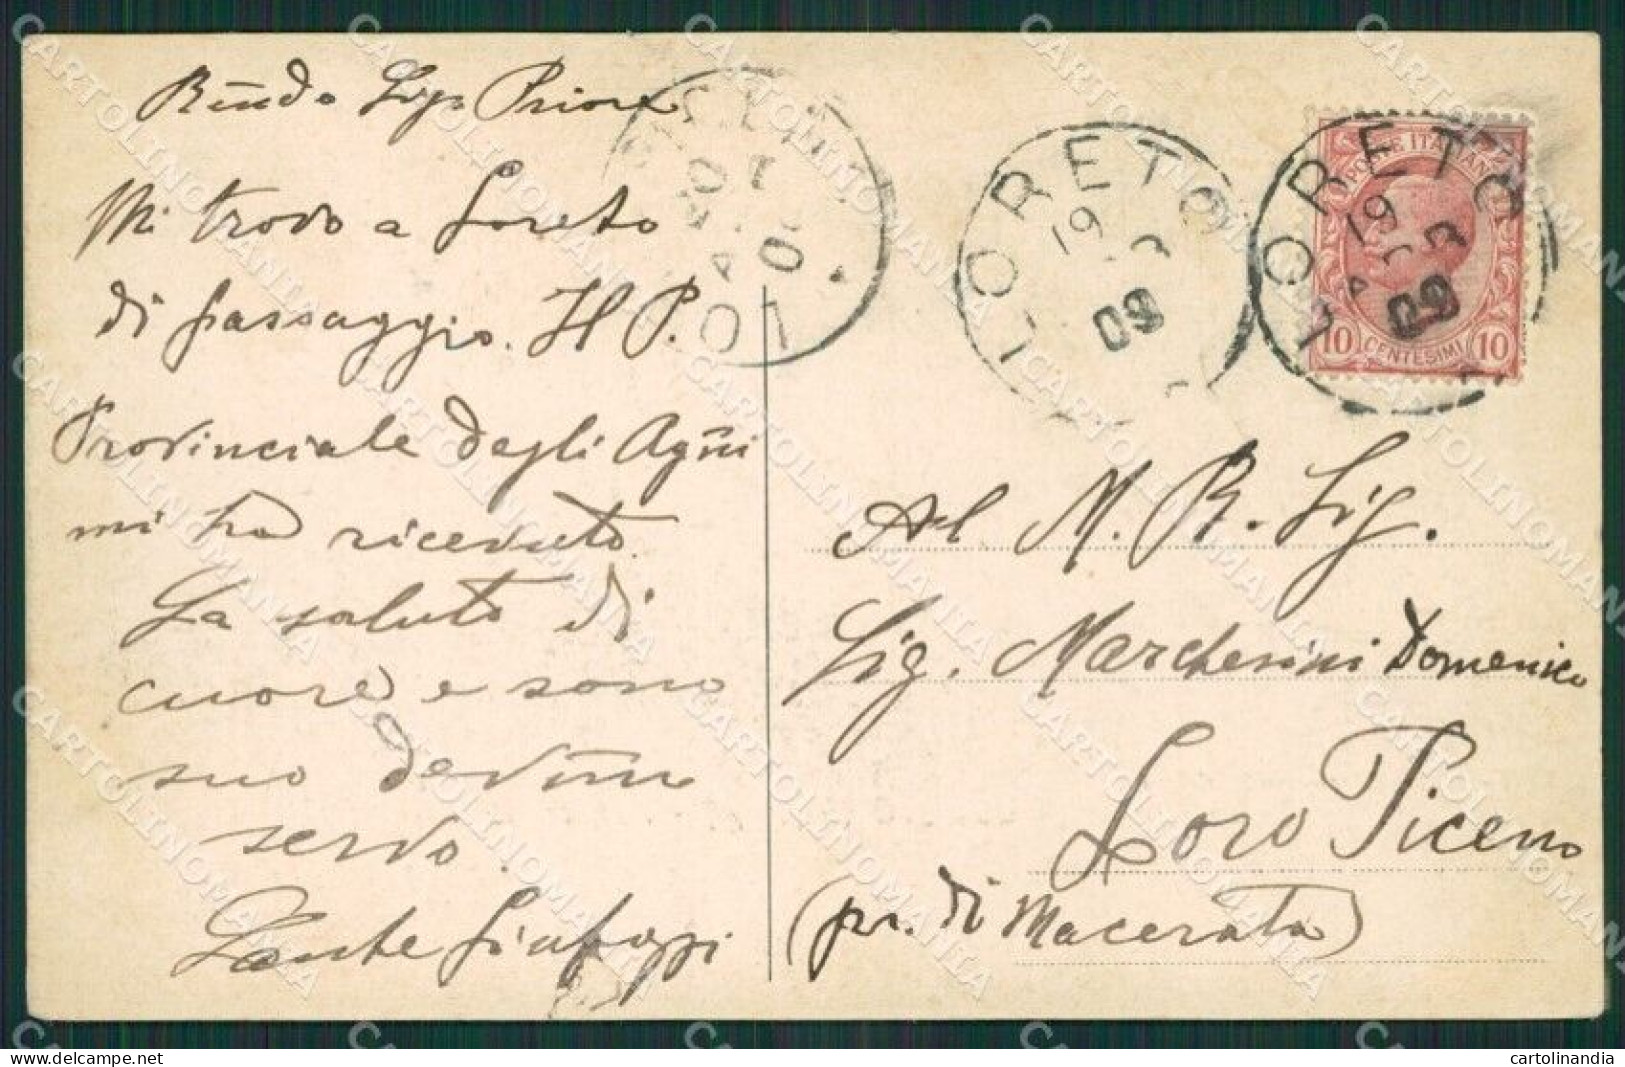 Mi trovo a Loreto
di passaggio. Il P.
Provinciale degli Agni
mi ha ricevuto.
La saluto di
cuore e sono
suo devmo
servo.
LORETO
19
09
LORETO
19
09
POSTE ITALIANE
10 CENTESIMI 10
Al M. R. Sig.
Sig. Marchesini Domenico
Loro Piceno
(pr. di Macerata)
CARTOLINOMANIA
cartolinandia